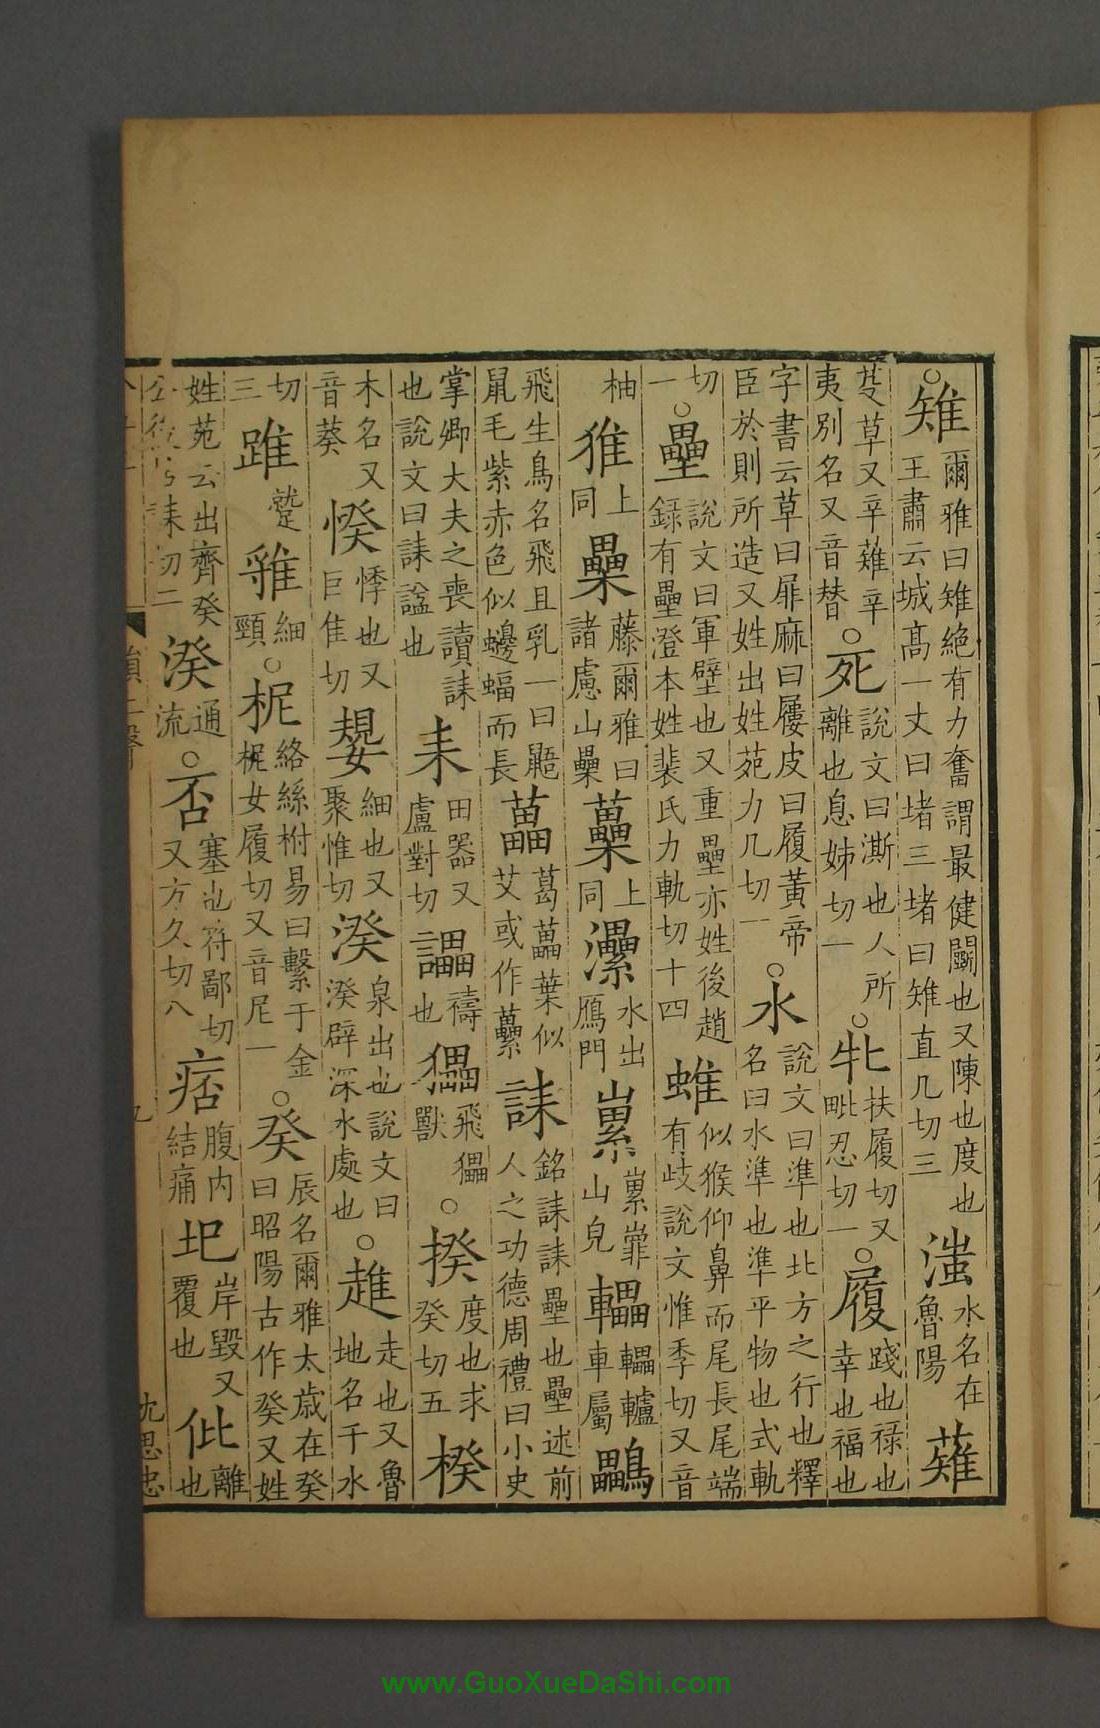 ○雉爾雅曰雉絶有力奮謂最健鬬也又陳也度也王肅云城高一丈曰堵三堵曰雉直几切三滍水名在魯陽薙
芟草又辛薙辛夷別名又音替○死說文曰澌也人所離也息姊切一○牝扶履切又毗忍切一○履踐也禄也幸也福也
字書云草曰屝麻曰屨皮曰履黃帝臣於則所造又姓出姓苑力几切一○水說文曰準也北方之行也釋名曰水準也準平物也式軌
切一○壘說文曰軍壁也又重壘亦姓後趙録有壘澄本姓裴氏力軌切十四蜼似猴仰鼻而尾長尾端有歧說文惟季切又音
柚𤝔上同櫐藤爾雅曰諸慮山櫐藟上同灅水出鴈門嶵山皃轠轠轤車屬鸓
飛生鳥名飛且乳一曰鼯鼠毛紫赤色似蝙蝠而長藟葛藟葉似艾或作虆誄銘誄誄壘也壘述前人之功德周禮曰小史
掌卿大夫之喪讀誄也說文曰誄諡也耒田器又盧對切讄禱也㹎飛㹎獸○揆度也求癸切五楑
木名又音葵悸悸也又巨隹切嫢細也又聚惟切湀泉出也說文曰湀辟深水處也○趡走也又魯地名千水
切三踓䠞雖細頸○柅絡絲柎易曰繫于金柅女履切又音尼一○癸辰名爾雅太歲在癸曰昭陽古作癸又姓
姓苑云出齊癸公後居誄切二湀通流○否塞也符鄙切又方久切八痞腹内結痛圮岸毀又覆也仳離也
九